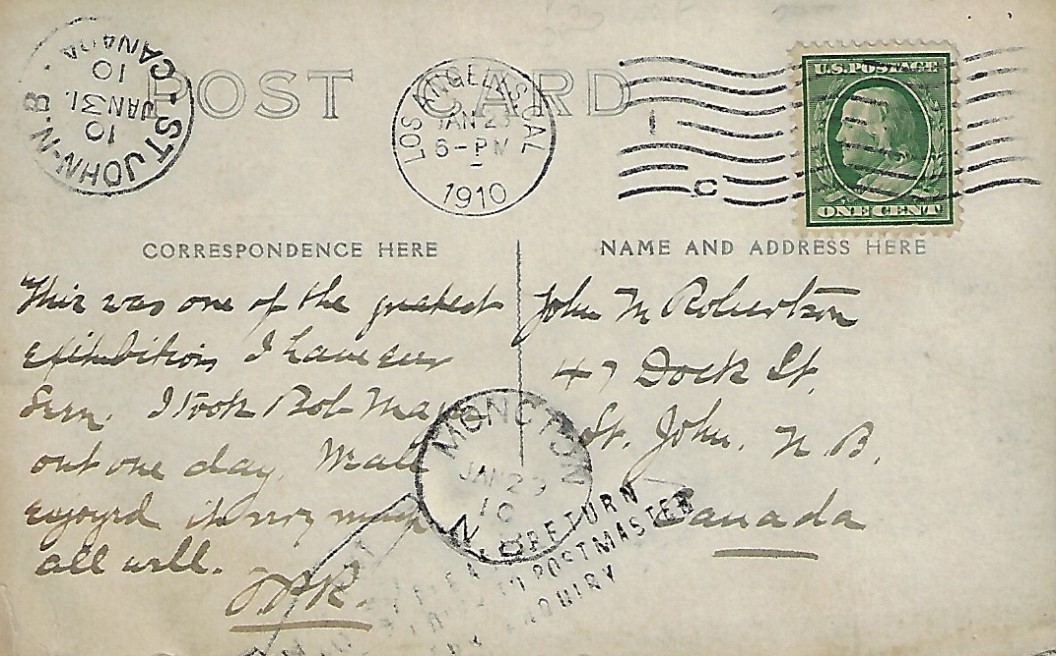 ST. JOHN-N-B. CANADA
10
JAN 31
10
POST CARD
LOS ANGELES, CAL
JAN 23
6-PM
1910
U.S. POSTAGE
ONE CENT
CORRESPONDENCE HERE
This was one of the greatest
exhibitions I have ever
seen. I took Rob
out one day.
enjoyed it very much
all well.
NAME AND ADDRESS HERE
John M Robertson
47 Dock St.
St. John. N B.
Canada
MONCTON
JAN 29
10
N.B.
RETURN
TO POSTMASTER
ENQUIRY